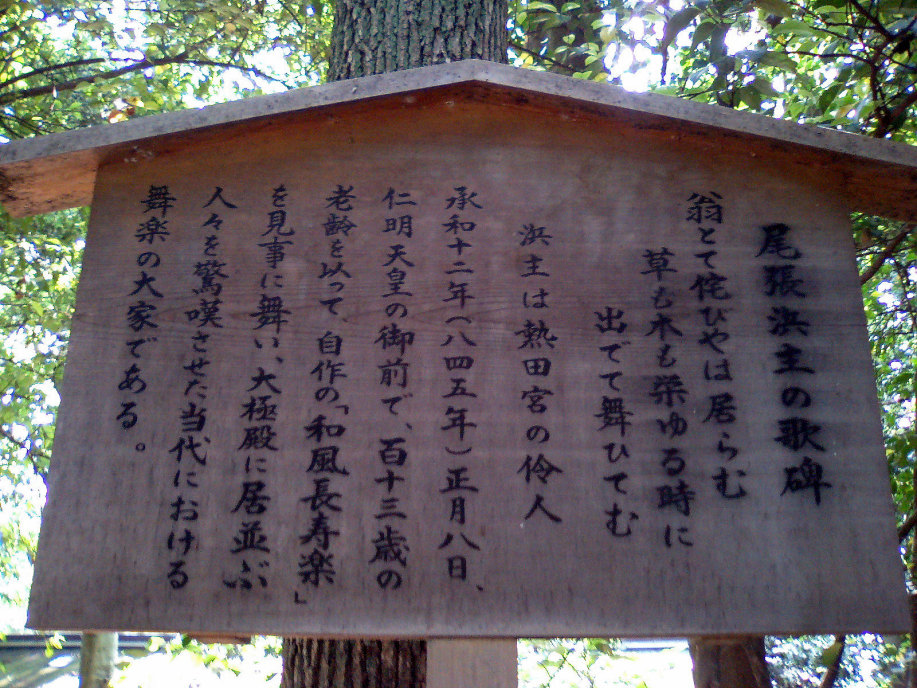 尾張浜主の歌碑
翁とて侘びやは居らむ
草も木も栄ゆる時に
出でて舞ひてむ
浜主は熱田宮の伶人
承和十二年（八四五年）正月八日、
仁明天皇の御前で、百十三歳の
老齢を以って、自作の「和風長寿楽」
を見事に舞い、大極殿に居並ぶ
人々を驚嘆させた当代における
舞楽の大家である。